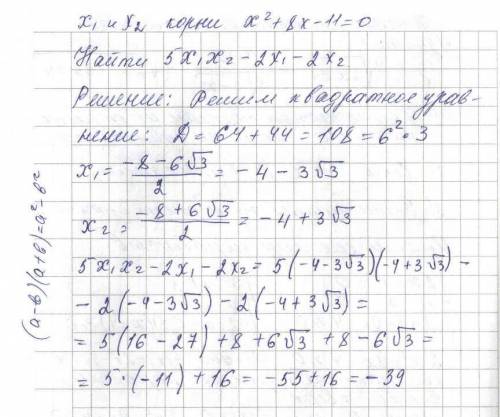 x₁ и x₂ корни x² + 8x - 11 = 0
Найти 5x₁x₂ - 2x₁ - 2x₂
Решение: Решим квадратное урав-
нение: D = 64 + 44 = 108 = 6² · 3
x₁ = (-8 - 6√3)/2 = -4 - 3√3
x₂ = (-8 + 6√3)/2 = -4 + 3√3
5x₁x₂ - 2x₁ - 2x₂ = 5(-4 - 3√3)(-4 + 3√3) -
- 2(-4 - 3√3) - 2(-4 + 3√3) =
= 5(16 - 27) + 8 + 6√3 + 8 - 6√3 =
= 5 · (-11) + 16 = -55 + 16 = -39
(a-в)(a+в)=a²-в²